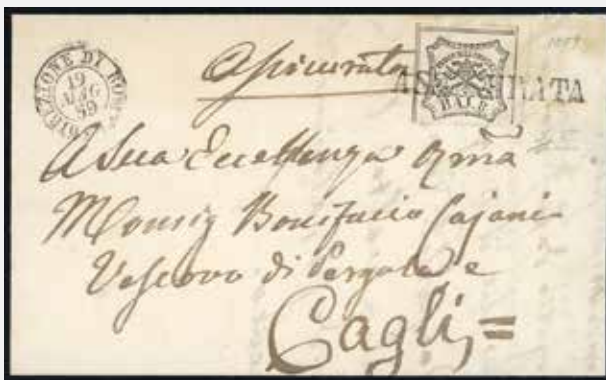 DIREZIONE DI ROMA
19
MAG
59
Assicurata
ASSICURATA
BAI 8
A Sua Eccellenza Rma
Monsig Bonifacio Cajani
Vescovo di Pergola e
Cagli =